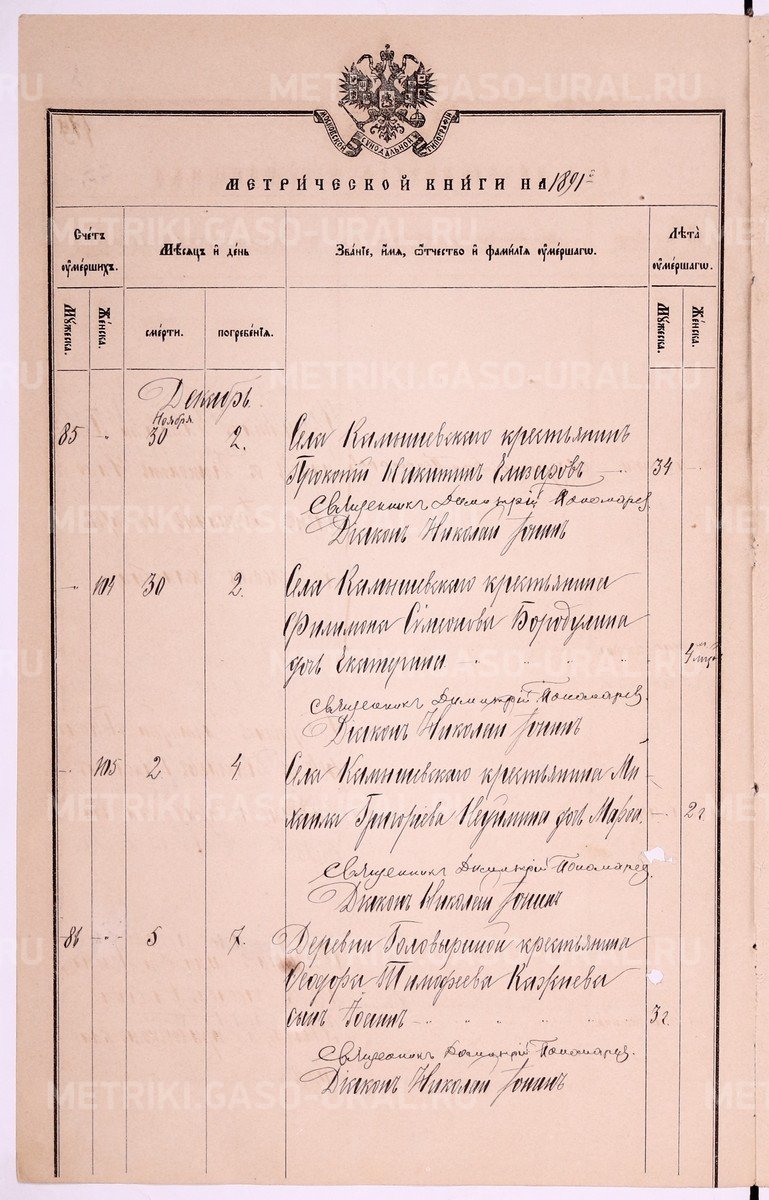 METRIKI.GASO-URAL.RU
МОСКОВСКОЙ СѴНОДАЛЬНОЙ ТИПОГРАФІИ
МЕТРИ́ЧЕСКОЙ КНИ́ГИ НА 1891 г
Сче́тъ ᲂу҆ме́ршихъ.
Мѣ́сѧцъ и҆ де́нь
Зва́нїе, и҆́мѧ, ѻ҆́тчество и҆ фами́лїѧ ᲂу҆ме́ршагѡ.
Лѣ́та ᲂу҆ме́ршагѡ.
Мꙋ́жеска.
Же́нска.
сме́рти.
погребе́нїѧ.
Мꙋ́жеска.
Же́нска.
Декабрь.
Ноября
85 " 30 2. Села Камышевскаго крестьянинъ
Прокопій Никитинъ Елизаровъ 34
Священникъ Димитрій Пономарев
Діаконъ Николай Іонинъ
104 30 2. Села Камышевскаго крестьянина
Филимона Симеонова Бородулина
дочь Екатерина 4
Священникъ Димитрій Пономарев.
Діаконъ Николай Іонинъ
105 2 4. Села Камышевскаго крестьянина Ми-
хаила Григоріева дочь 2 г
Священникъ Димитрій Пономарев.
Діаконъ Николай Іонинъ
86 5 7. Деревни Головыриной крестьянина
Ѳеодора Тимофеева
сынъ 3 г.
Священникъ Димитрій Пономарев.
Діаконъ Николай Іонинъ